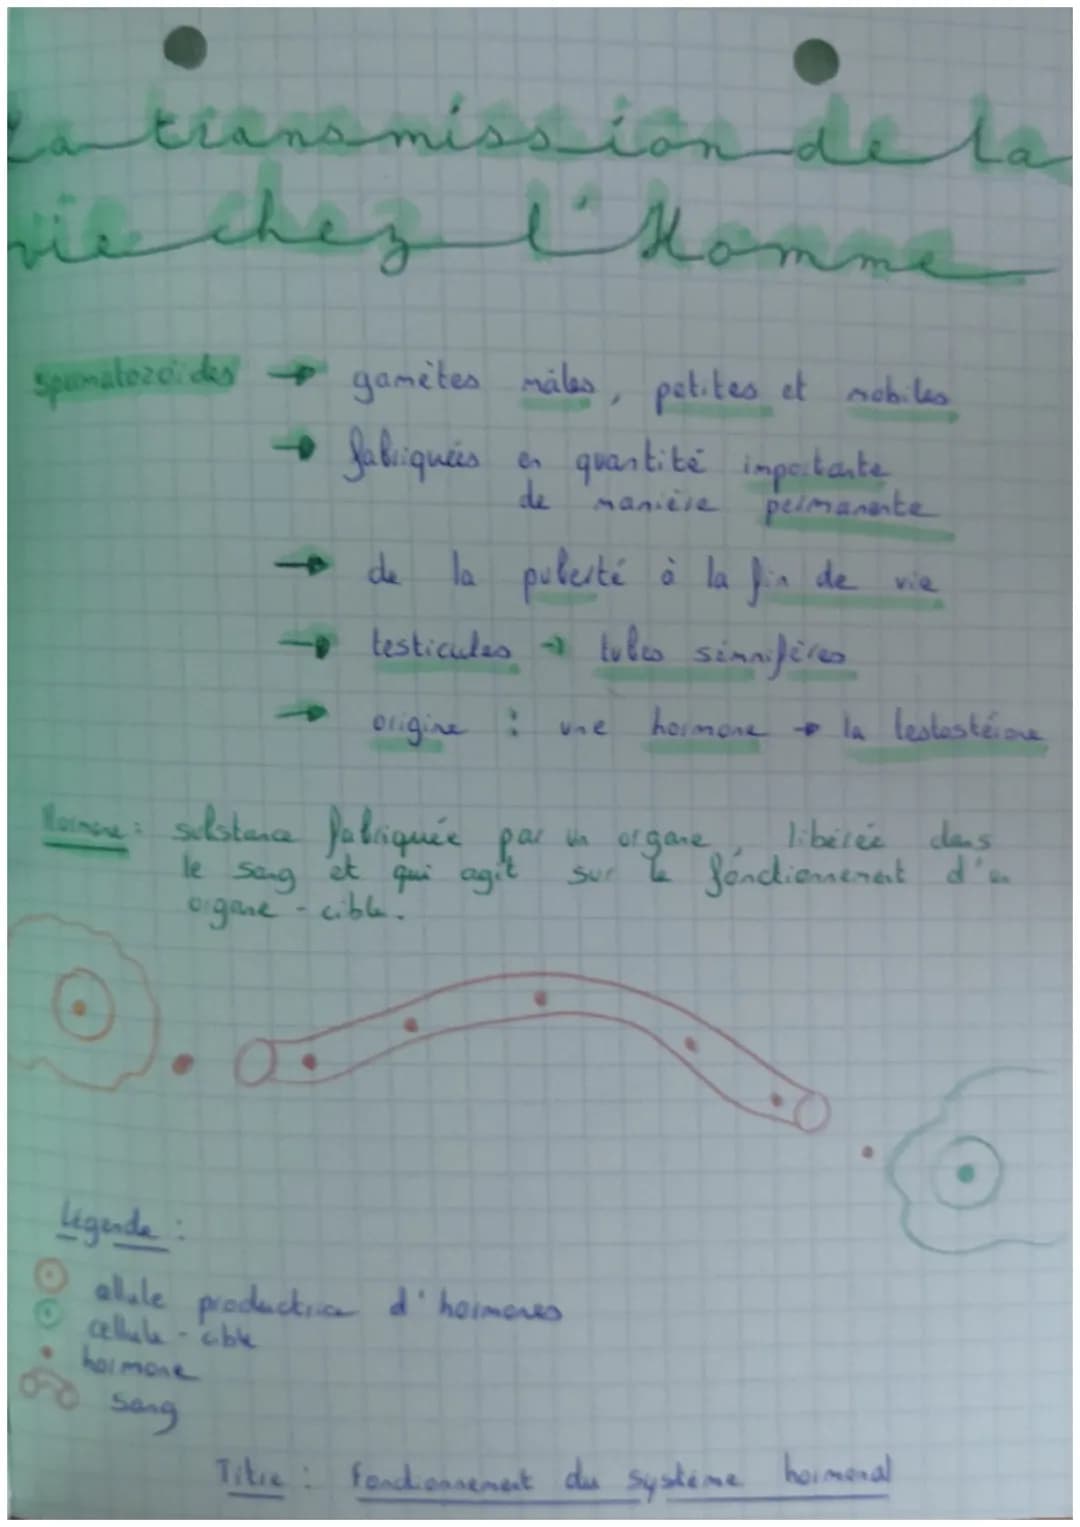 La transmission de la
vie chez l'Homme
spermatozoïdes → gamètes mâles, petites et mobiles
→ fabriquées en quantité importante
de manière permanente
→ de la puberté à la fin de vie
→ testicules → tubes séminifères
→ origine : une hormone → la testostérone
Hormone : substance fabriquée par un organe, libérée dans
le sang et qui agit sur le fonctionnement d'un
organe-cible.
Légende :
cellule productrice d'hormones
cellule-cible
hormone
sang
Titre : Fonctionnement du système hormonal